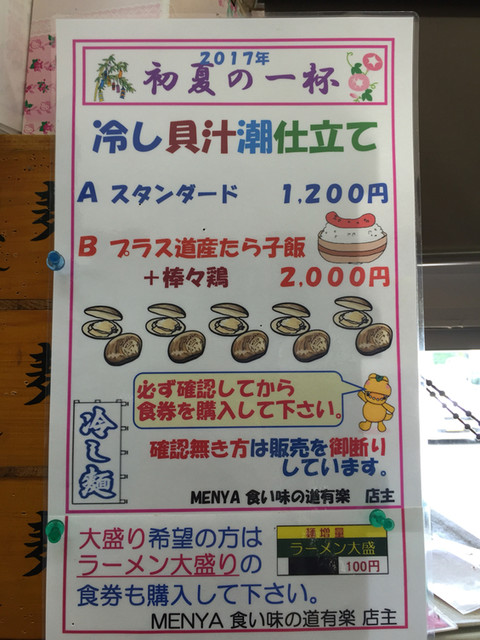 2017年
初夏の一杯
冷し貝汁潮仕立て
A スタンダード 1,200円
B プラス道産たら子飯
+棒々鶏 2,000円
必ず確認してから
食券を購入して下さい。
冷し麺
確認無き方は販売を御断り
しています。
MENYA 食い味の道有楽 店主
大盛り希望の方は
ラーメン大盛りの
食券も購入して下さい。
麺増量
ラーメン大盛
100円
MENYA 食い味の道有楽 店主